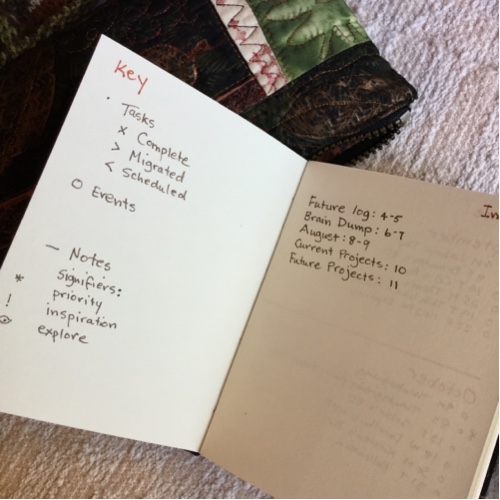 Key
· Tasks
x Complete
> Migrated
< Scheduled
O Events
— Notes
Signifiers:
* priority
! inspiration
explore
In
Future log: 4-5
Brain Dump: 6-7
August: 8-9
Current Projects: 10
Future Projects: 11